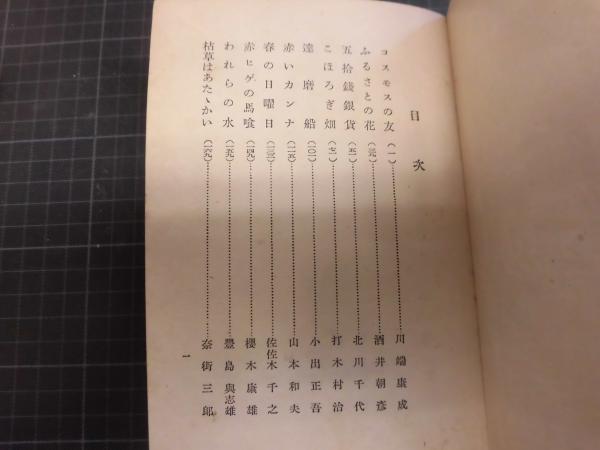 目次
コスモスの友(一)……川端康成
ふるさとの花(三九)……酒井朝彦
五拾錢銀貨(五一)……北川千代
こほろぎ畑(七一)……打木村治
達磨船(一〇一)……小出正吾
赤いカンナ(一一五)……山本和夫
春の日曜日(一三一)……佐佐木千之
赤ヒゲの馬喰(一四九)……櫻木康雄
われらの水(一五九)……豐島與志雄
枯草はあたゝかい(一六九)……奈街三郎
一